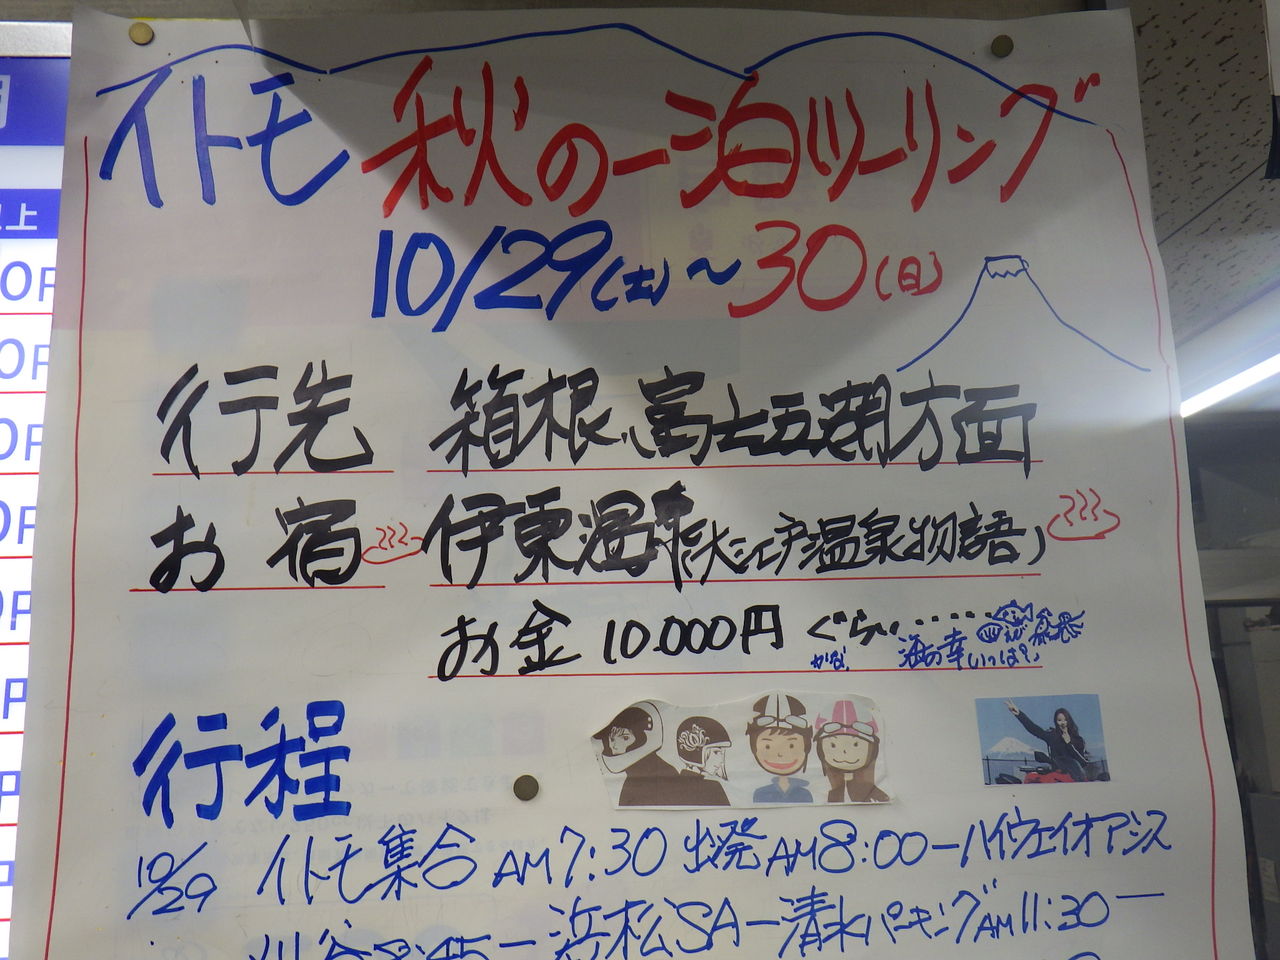 イトモ 秋の一泊ツーリング
10/29(土)〜30(日)
行先 箱根、富士五湖方面
お宿 伊東温泉(大江戸温泉物語)
お金 10.000円ぐらい・・・・・
かな。 海の幸いっぱい
行程
10/29 イトモ集合AM7:30 出発AM8:00ーハイウェイオアシス
刈谷8:45ー浜松SAー清水パーキングAM11:30ー